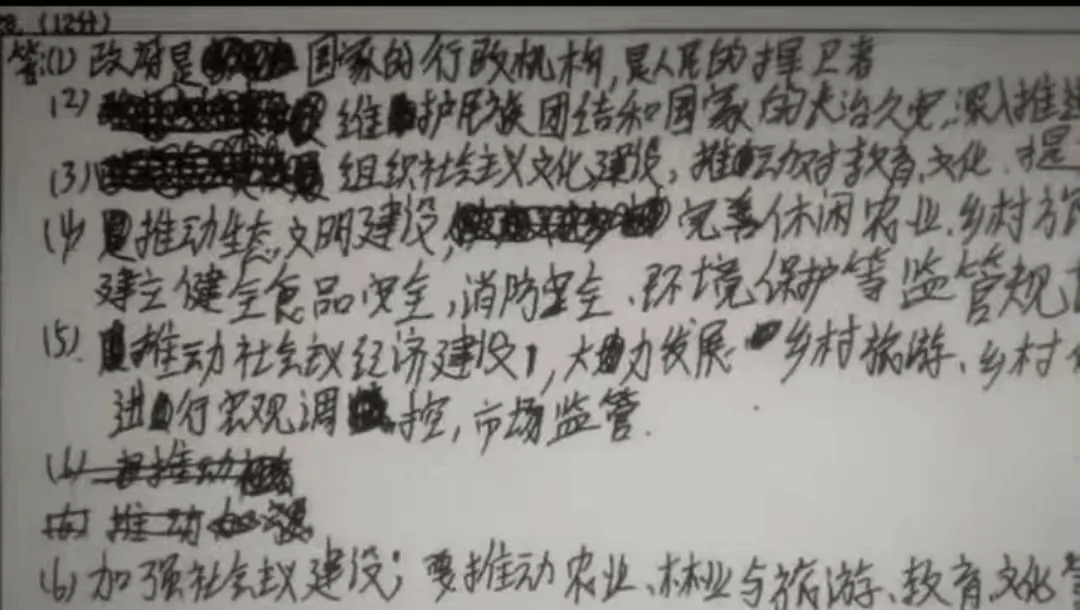 28.(12分)
答:(1) 政府是国家的行政机构,是人民的捍卫者
(2) 维护民族团结和国家的长治久安.深入推进
(3) 组织社会主义文化建设,推动对教育、文化.提
(4) 推动生态文明建设,完善休闲农业.乡村旅
建立健全食品安全,消防安全、环境保护等监管规
(5). 推动社会主义经济建设,大力发展乡村旅游、乡村
进行宏观调控,市场监管.
(6) 推动
推动
(6) 加强社会主义建设;要推动农业、林业与旅游、教育、文化等